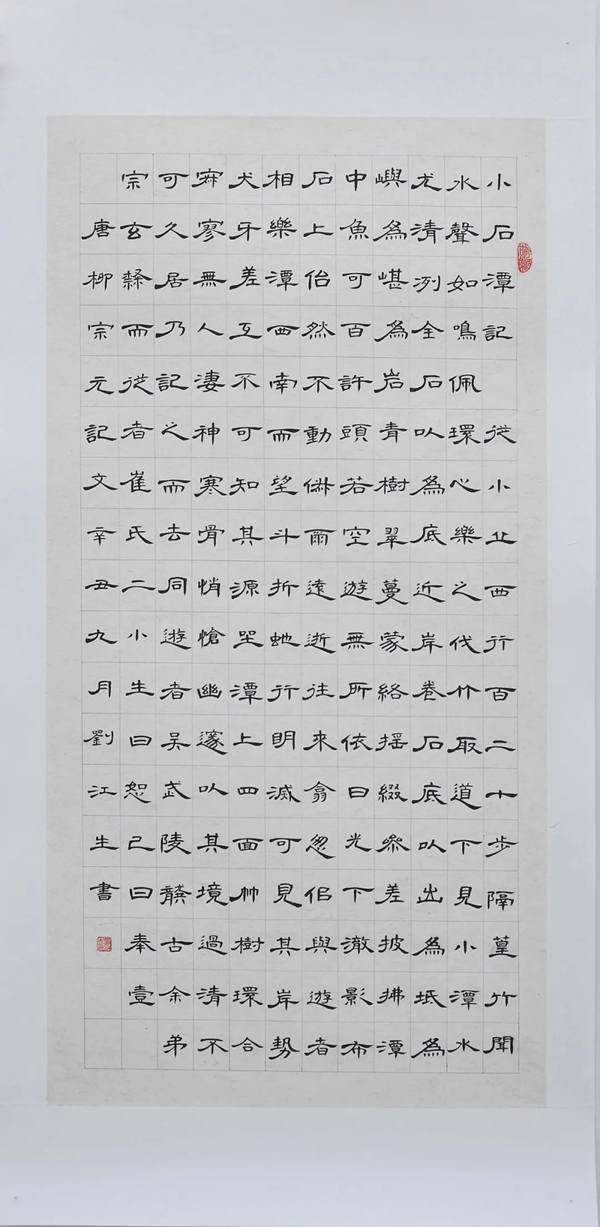 小石潭記 從小丘西行百二十步隔篁竹聞
水聲如鳴佩環心樂之伐竹取道下見小潭水
尤清冽全石以為底近岸卷石底以出為坻為
嶼為嵁為岩青樹翠蔓蒙絡搖綴參差披拂潭
中魚可百許頭若空遊無所依日光下澈影布
石上佁然不動俶爾遠逝往來翕忽佀與遊者
相樂潭西南而望斗折虵行明滅可見其岸勢
犬牙差互不可知其源坐潭上四面竹樹環合
寂寥無人淒神寒骨悄愴幽邃以其境過清不
可久居乃記之而去同遊者吳武陵龔古余弟
宗玄隸而從者崔氏二小生曰恕己曰奉壹
唐柳宗元記文辛丑九月劉江生書